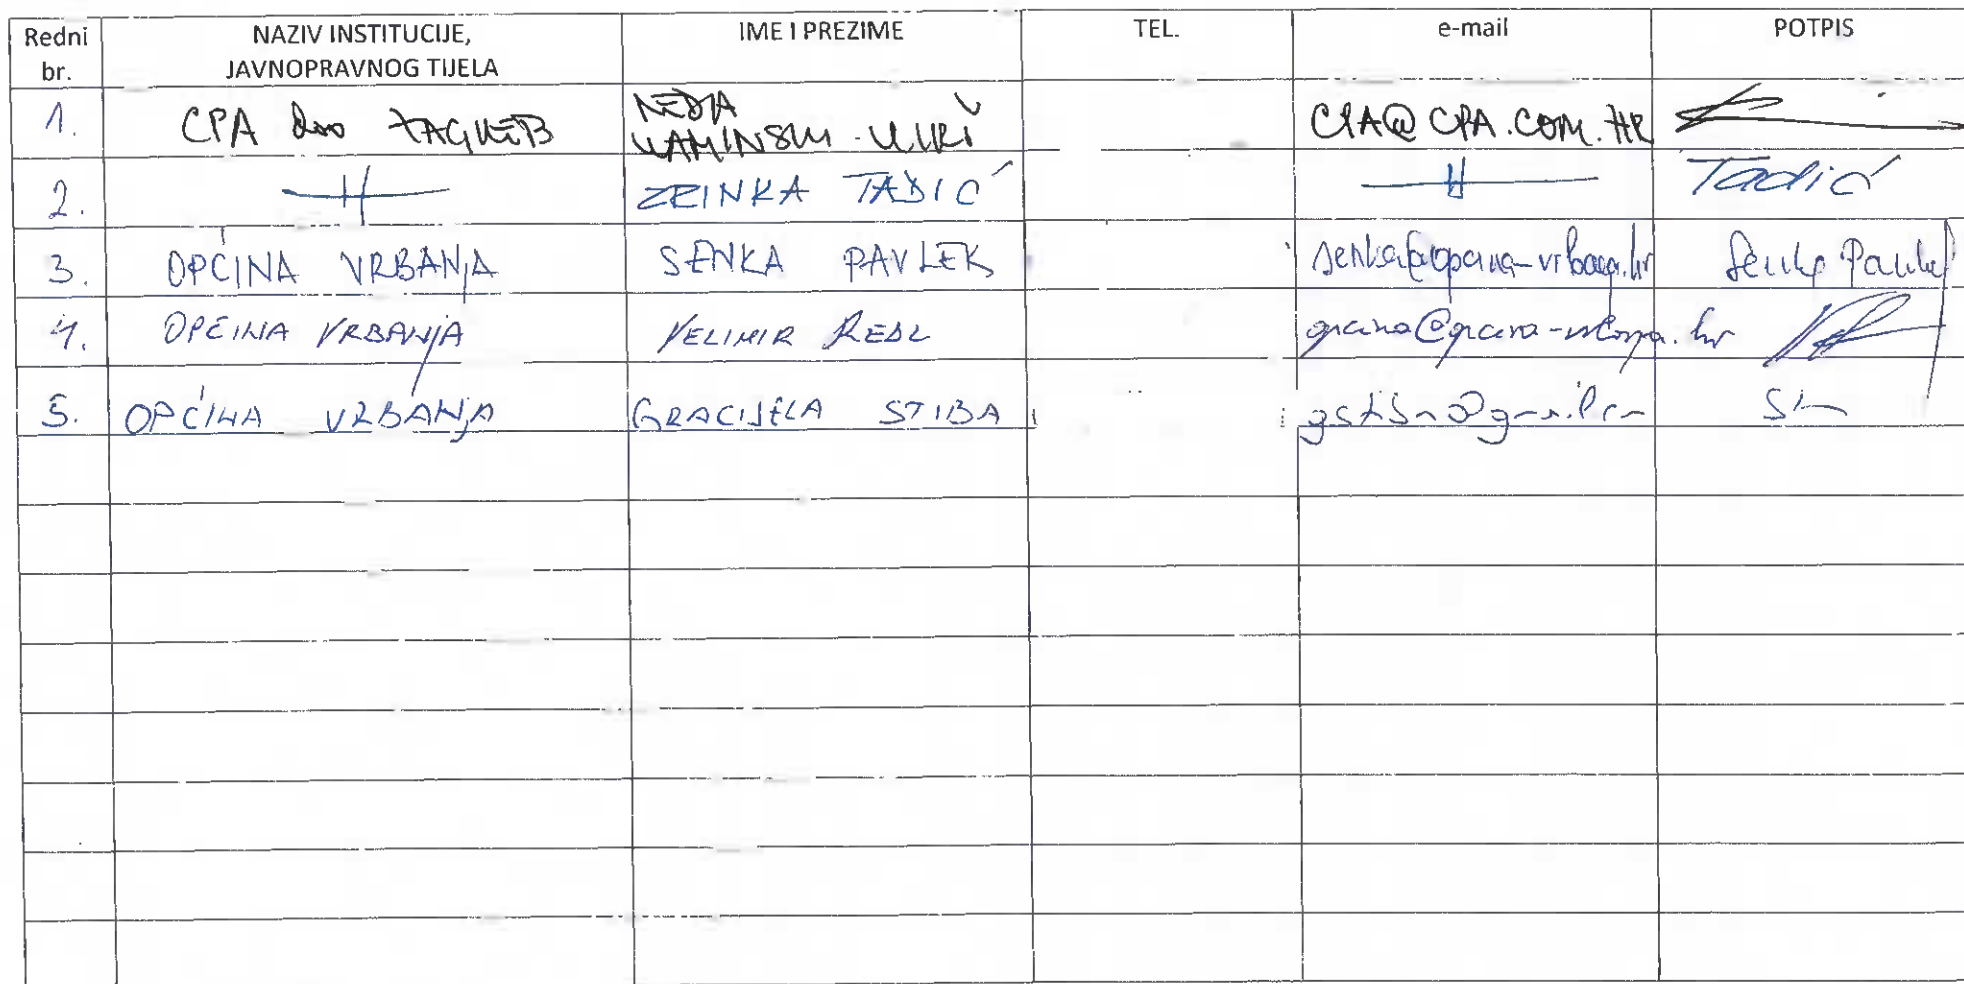 Redni br. NAZIV INSTITUCIJE, JAVNOPRAVNOG TIJELA IME I PREZIME TEL. e-mail POTPIS
1. CPA doo ZAGREB NEDA KAMINSKI-KIRŠ CPA@CPA.COM.HR
2. —||— ZRINKA TADIĆ —||— Tadić
3. OPĆINA VRBANJA SENKA PAVLEK senka@opcina-vrbanja.hr Senka Pavlek
4. OPĆINA VRBANJA VELIMIR REBL opcina@opcina-vrbanja.hr
5. OPĆINA VRBANJA GRACIJELA STIBA